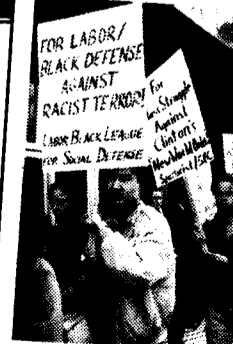 FOR LABOR/
BLACK DEFENSE
AGAINST
RACIST TERROR!
LABOR BLACK LEAGUE
FOR SOCIAL DEFENSE
For
Class Struggle
Against
Clinton's
New World Order
Spartacist